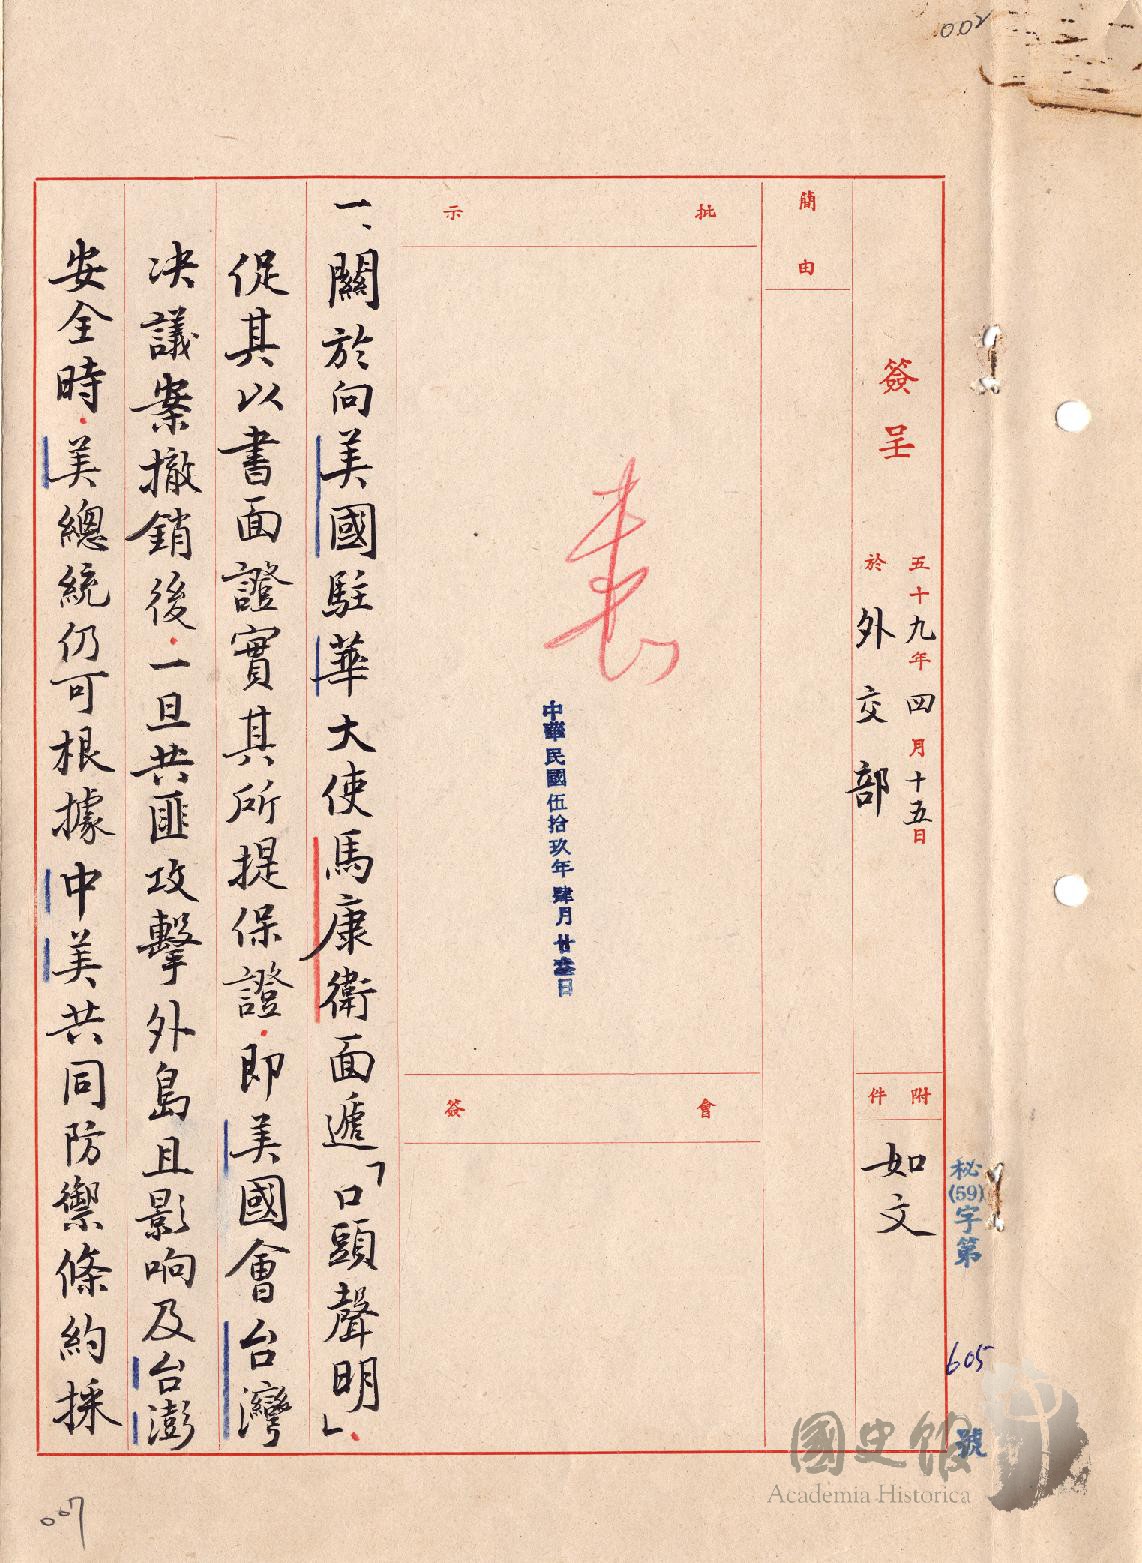 002
簽呈
五十九年四月十五日
於外交部
附件
如文
秘(59)字第605號
簡由
批示
中華民國伍拾玖年肆月廿叁日
會簽
一、關於向美國駐華大使馬康衛面遞「口頭聲明」、
促其以書面證實其所提保證．即美國會台灣
決議案撤銷後．一旦共匪攻擊外島且影响及台澎
安全時．美總統仍可根據中美共同防禦條約採
007
國史館
Academia Historica